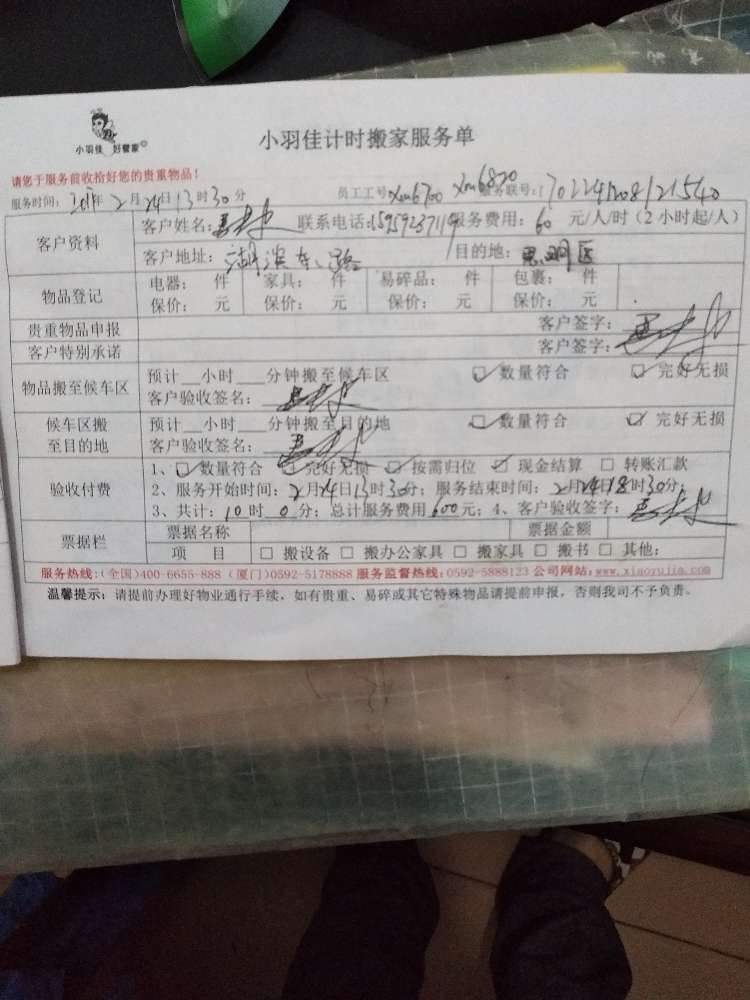 小羽佳 好管家
小羽佳计时搬家服务单
请您于服务前收拾好您的贵重物品！
服务时间: 年2月24日13时30分 员工工号xm6700 xm6820 服务联号:1702241208121540
客户资料
客户姓名: 联系电话: 服务费用: 60 元/人/时(2小时起/人)
客户地址: 湖滨东路 目的地: 思明区
物品登记
电器: 件 家具: 件 易碎品: 件 包裹: 件
保价: 元 保价: 元 保价: 元 保价: 元
贵重物品申报 客户签字:
客户特别承诺 客户签字:
物品搬至候车区
预计__小时___分钟搬至候车区 数量符合 完好无损
客户验收签名:
候车区搬至目的地
预计__小时___分钟搬至目的地 数量符合 完好无损
客户验收签名:
验收付费
1、数量符合 完好无损 按需归位 现金结算 转账汇款
2、服务开始时间: 2月24日13时30分; 服务结束时间: 2月24日18时30分;
3、共计: 10时 0分; 总计服务费用600元; 4、客户验收签字:
票据栏
票据名称 票据金额
项 目 搬设备 搬办公家具 搬家具 搬书 其他:
服务热线:(全国)400-6655-888 (厦门)0592-5178888 服务监督热线:0592-5888123 公司网站:www.xiaoyujia.com
温馨提示: 请提前办理好物业通行手续, 如有贵重、易碎或其它特殊物品请提前申报, 否则我司不予负责。